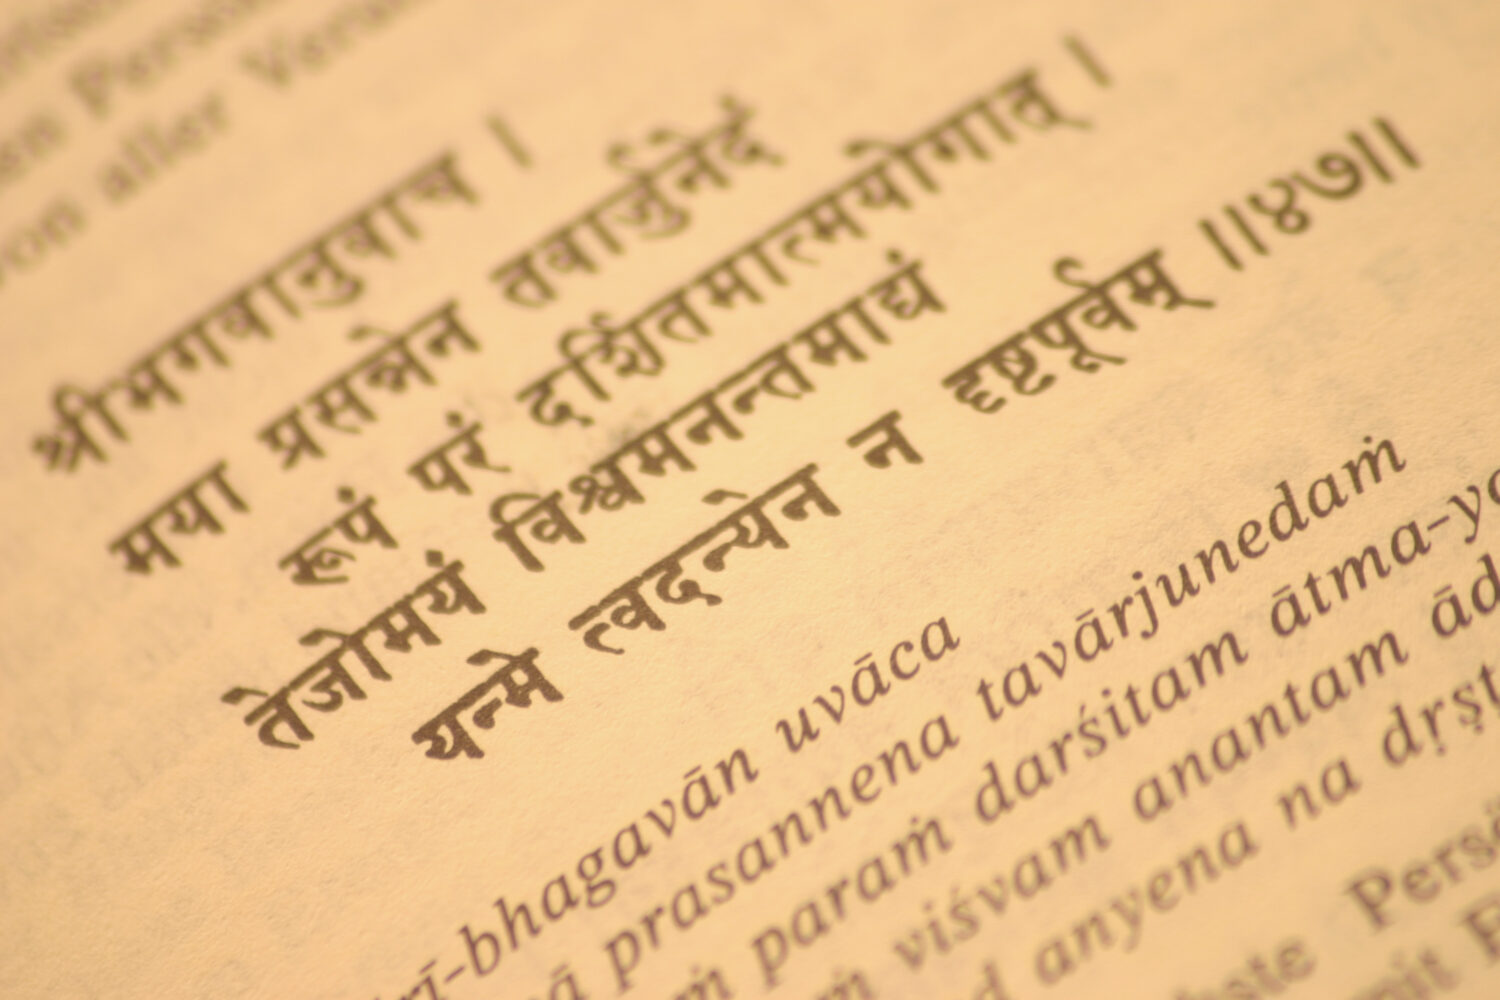 en Person
von aller Veran
श्रीभगवानुवाच ।
मया प्रसन्नेन तवार्जुनेदं
रूपं परं दर्शितमात्मयोगात् ।
तेजोमयं विश्वमनन्तमाद्यं
यन्मे त्वदन्येन न दृष्टपूर्वम् ॥४७॥
rī-bhagavān uvāca
ā prasannena tavārjunedaṁ
ṁ paraṁ darśitam ātma-yo
ṁ viśvam anantam ād
d anyena na dṛṣṭ
hste Persö
mit